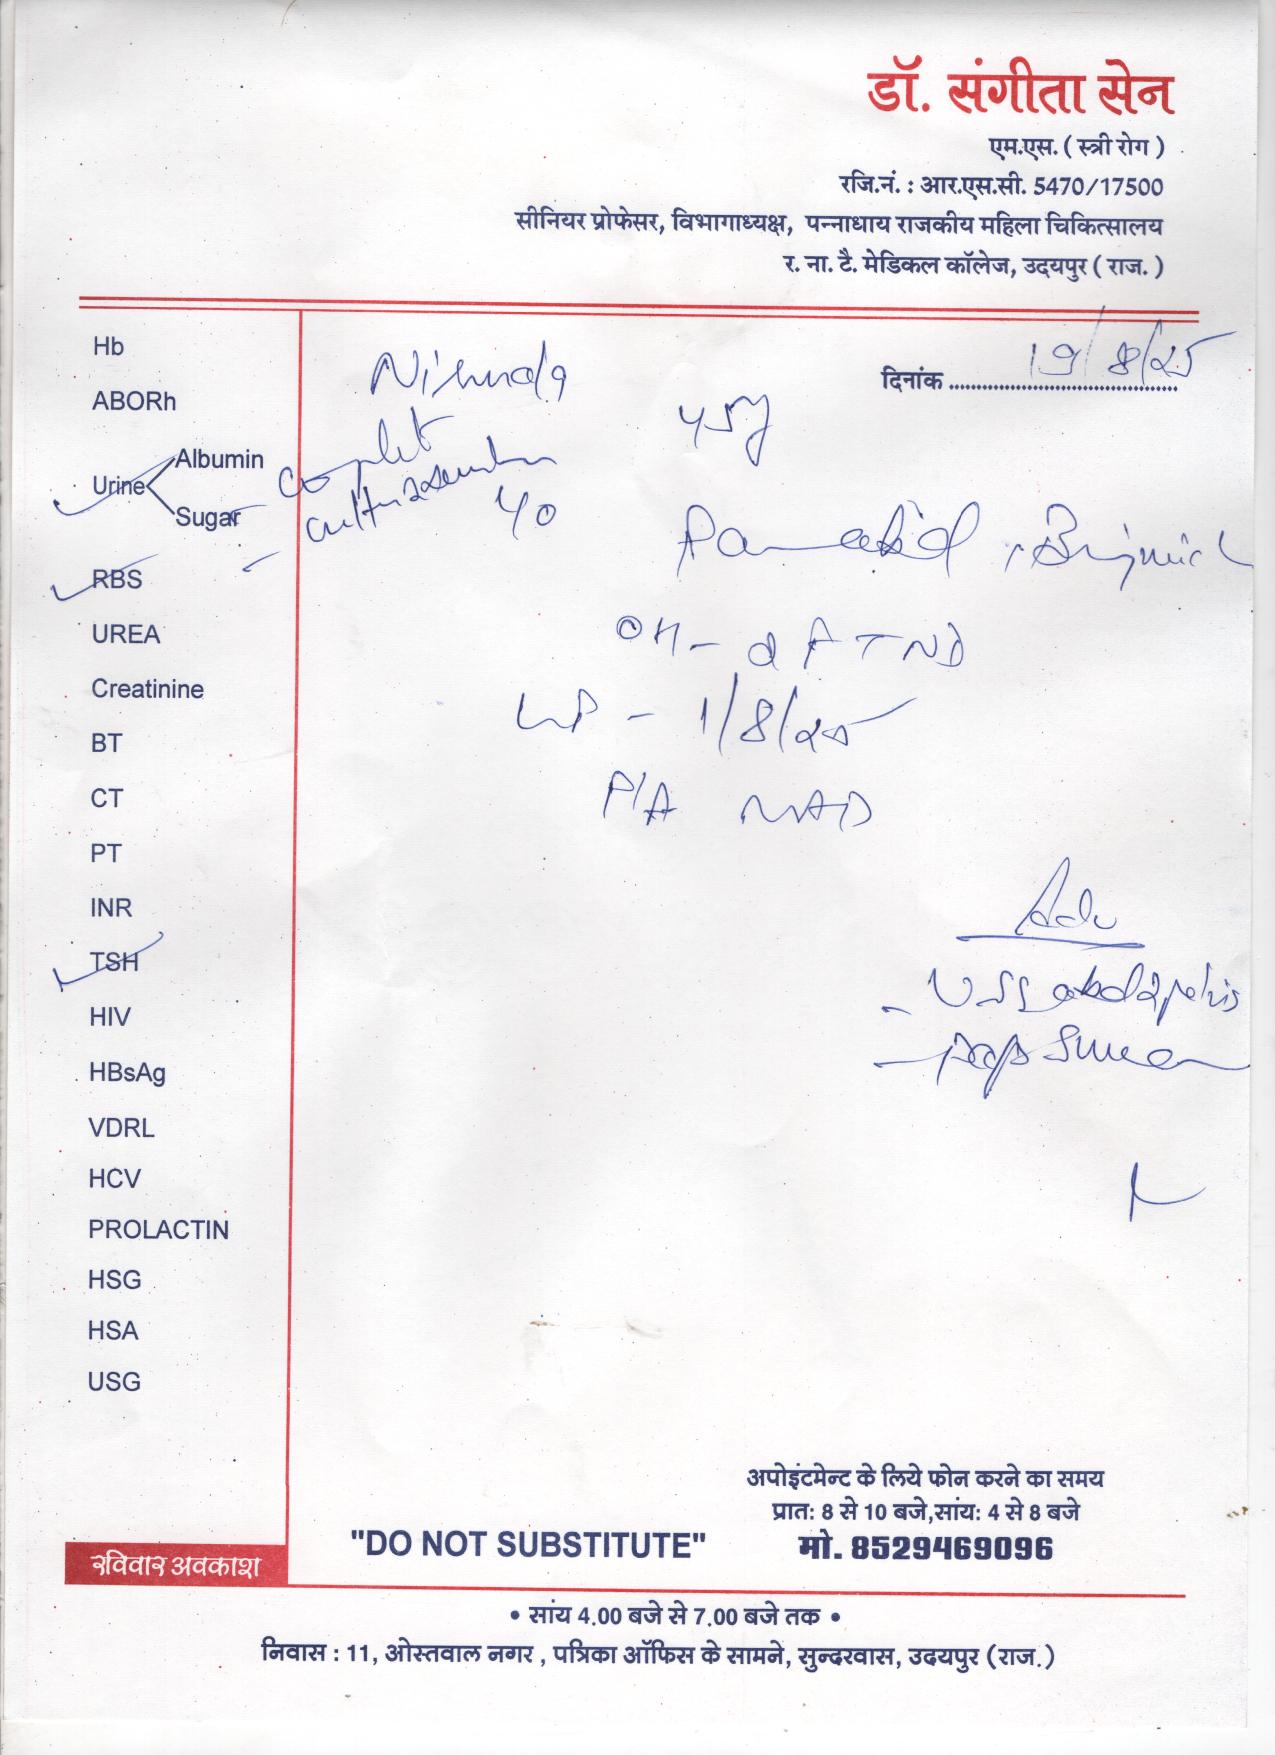 डॉ. संगीता सेन
एम.एस. ( स्त्री रोग )
रजि.नं. : आर.एस.सी. 5470/17500
सीनियर प्रोफेसर, विभागाध्यक्ष, पन्नाधाय राजकीय महिला चिकित्सालय
र. ना. टै. मेडिकल कॉलेज, उदयपुर ( राज. )
दिनांक 19/8/25
45y
Hb
ABORh
Urine Albumin
Sugar
- complet
- culture
RBS
UREA
Creatinine
BT
CT
PT
INR
TSH
HIV
HBsAg
VDRL
HCV
PROLACTIN
HSG
HSA
USG
OH - 2 FTND
LMP - 1/8/25
P/A NAD
Adv
- USG abd & pelvis
- Pap Smear
अपोइंटमेन्ट के लिये फोन करने का समय
प्रात: 8 से 10 बजे,सांय: 4 से 8 बजे
"DO NOT SUBSTITUTE"
मो. 8529469096
रविवार अवकाश
• सांय 4.00 बजे से 7.00 बजे तक •
निवास : 11, ओस्तवाल नगर , पत्रिका ऑफिस के सामने, सुन्दरवास, उदयपुर (राज.)